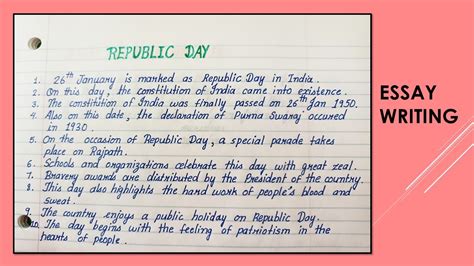 REPUBLIC DAY
1. 26th January is marked as Republic Day in India.
2. On this day, the constitution of India came into existence.
3. The constitution of India was finally passed on 26th Jan 1950.
4. Also on this date, the declaration of Purna Swaraj occured
in 1930.
5. On the occasion of Republic Day, a special parade takes
place on Rajpath.
6. Schools and organizations celebrate this day with great zeal.
7. Bravery awards are distributed by the President of the country.
8. This day also highlights the hard work of people's blood and
sweat.
9. The country enjoys a public holiday on Republic Day.
10. The day begins with the feeling of patriotism in the
hearts of people.
ESSAY
WRITING